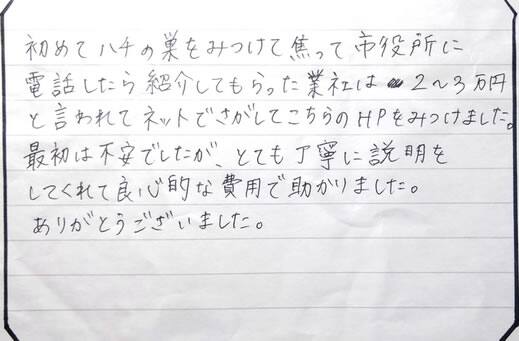 初めてハチの巣をみつけて焦って市役所に
電話したら紹介してもらった業社は 2～3万円
と言われてネットでさがしてこちらのHPをみつけました。
最初は不安でしたが、とても丁寧に説明を
してくれて良心的な費用で助かりました。
ありがとうございました。